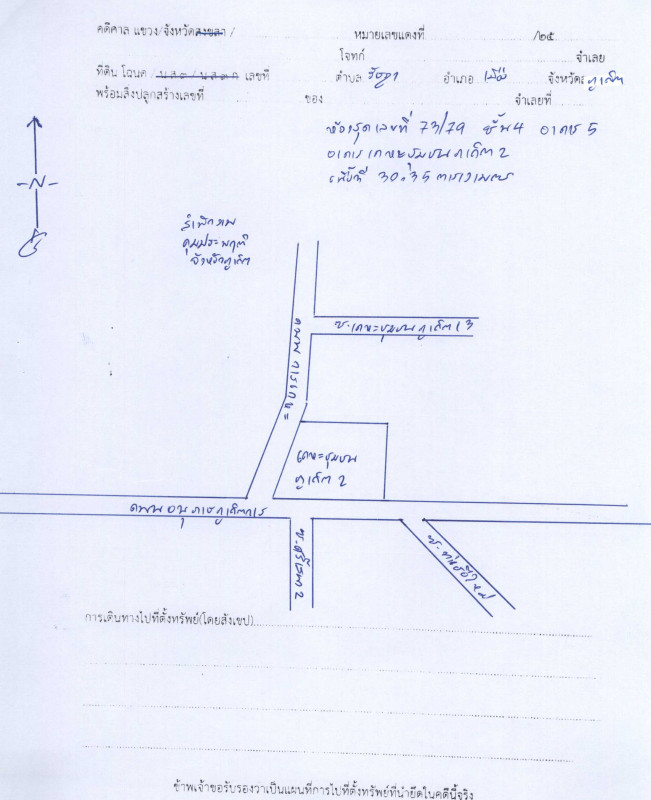 คดีศาล แขวง/จังหวัดสงขลา / หมายเลขแดงที่ /๒๕
โจทก์ จำเลย
ที่ดิน โฉนด / น.ส.๓ / น.ส.๓ ก เลขที่ ตำบล รัษฎา อำเภอ เมือง จังหวัด ภูเก็ต
พร้อมสิ่งปลูกสร้างเลขที่ ของ จำเลยที่
ห้องชุดเลขที่ 73/79 ชั้น 4 อาคาร 5
อาคารเคหะชุมชนภูเก็ต 2
เนื้อที่ 30.35 ตารางเมตร
N
คุมประพฤติ
จังหวัดภูเก็ต
ซ.เคหะชุมชนภูเก็ต 3
ถนน การเคหะ
เคหะชุมชน
ภูเก็ต 2
ถนน อนุภาษภูเก็ตการ
2
การเดินทางไปที่ตั้งทรัพย์(โดยสังเขป)
ข้าพเจ้าขอรับรองว่าเป็นแผนที่การไปที่ตั้งทรัพย์ที่นำยึดในคดีนี้จริง